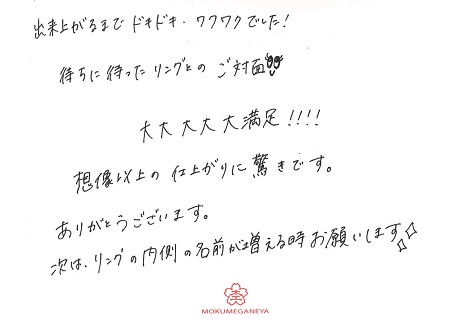 出来上がるまで ドキドキ・ワクワクでした！
待ちに待ったリングとの ご対面!!
大大大大大満足！！！！
想像以上の仕上がりに驚きです。
ありがとうございます。
次は、リングの内側の名前が増える時お願いします☆☆
MOKUMEGANEYA